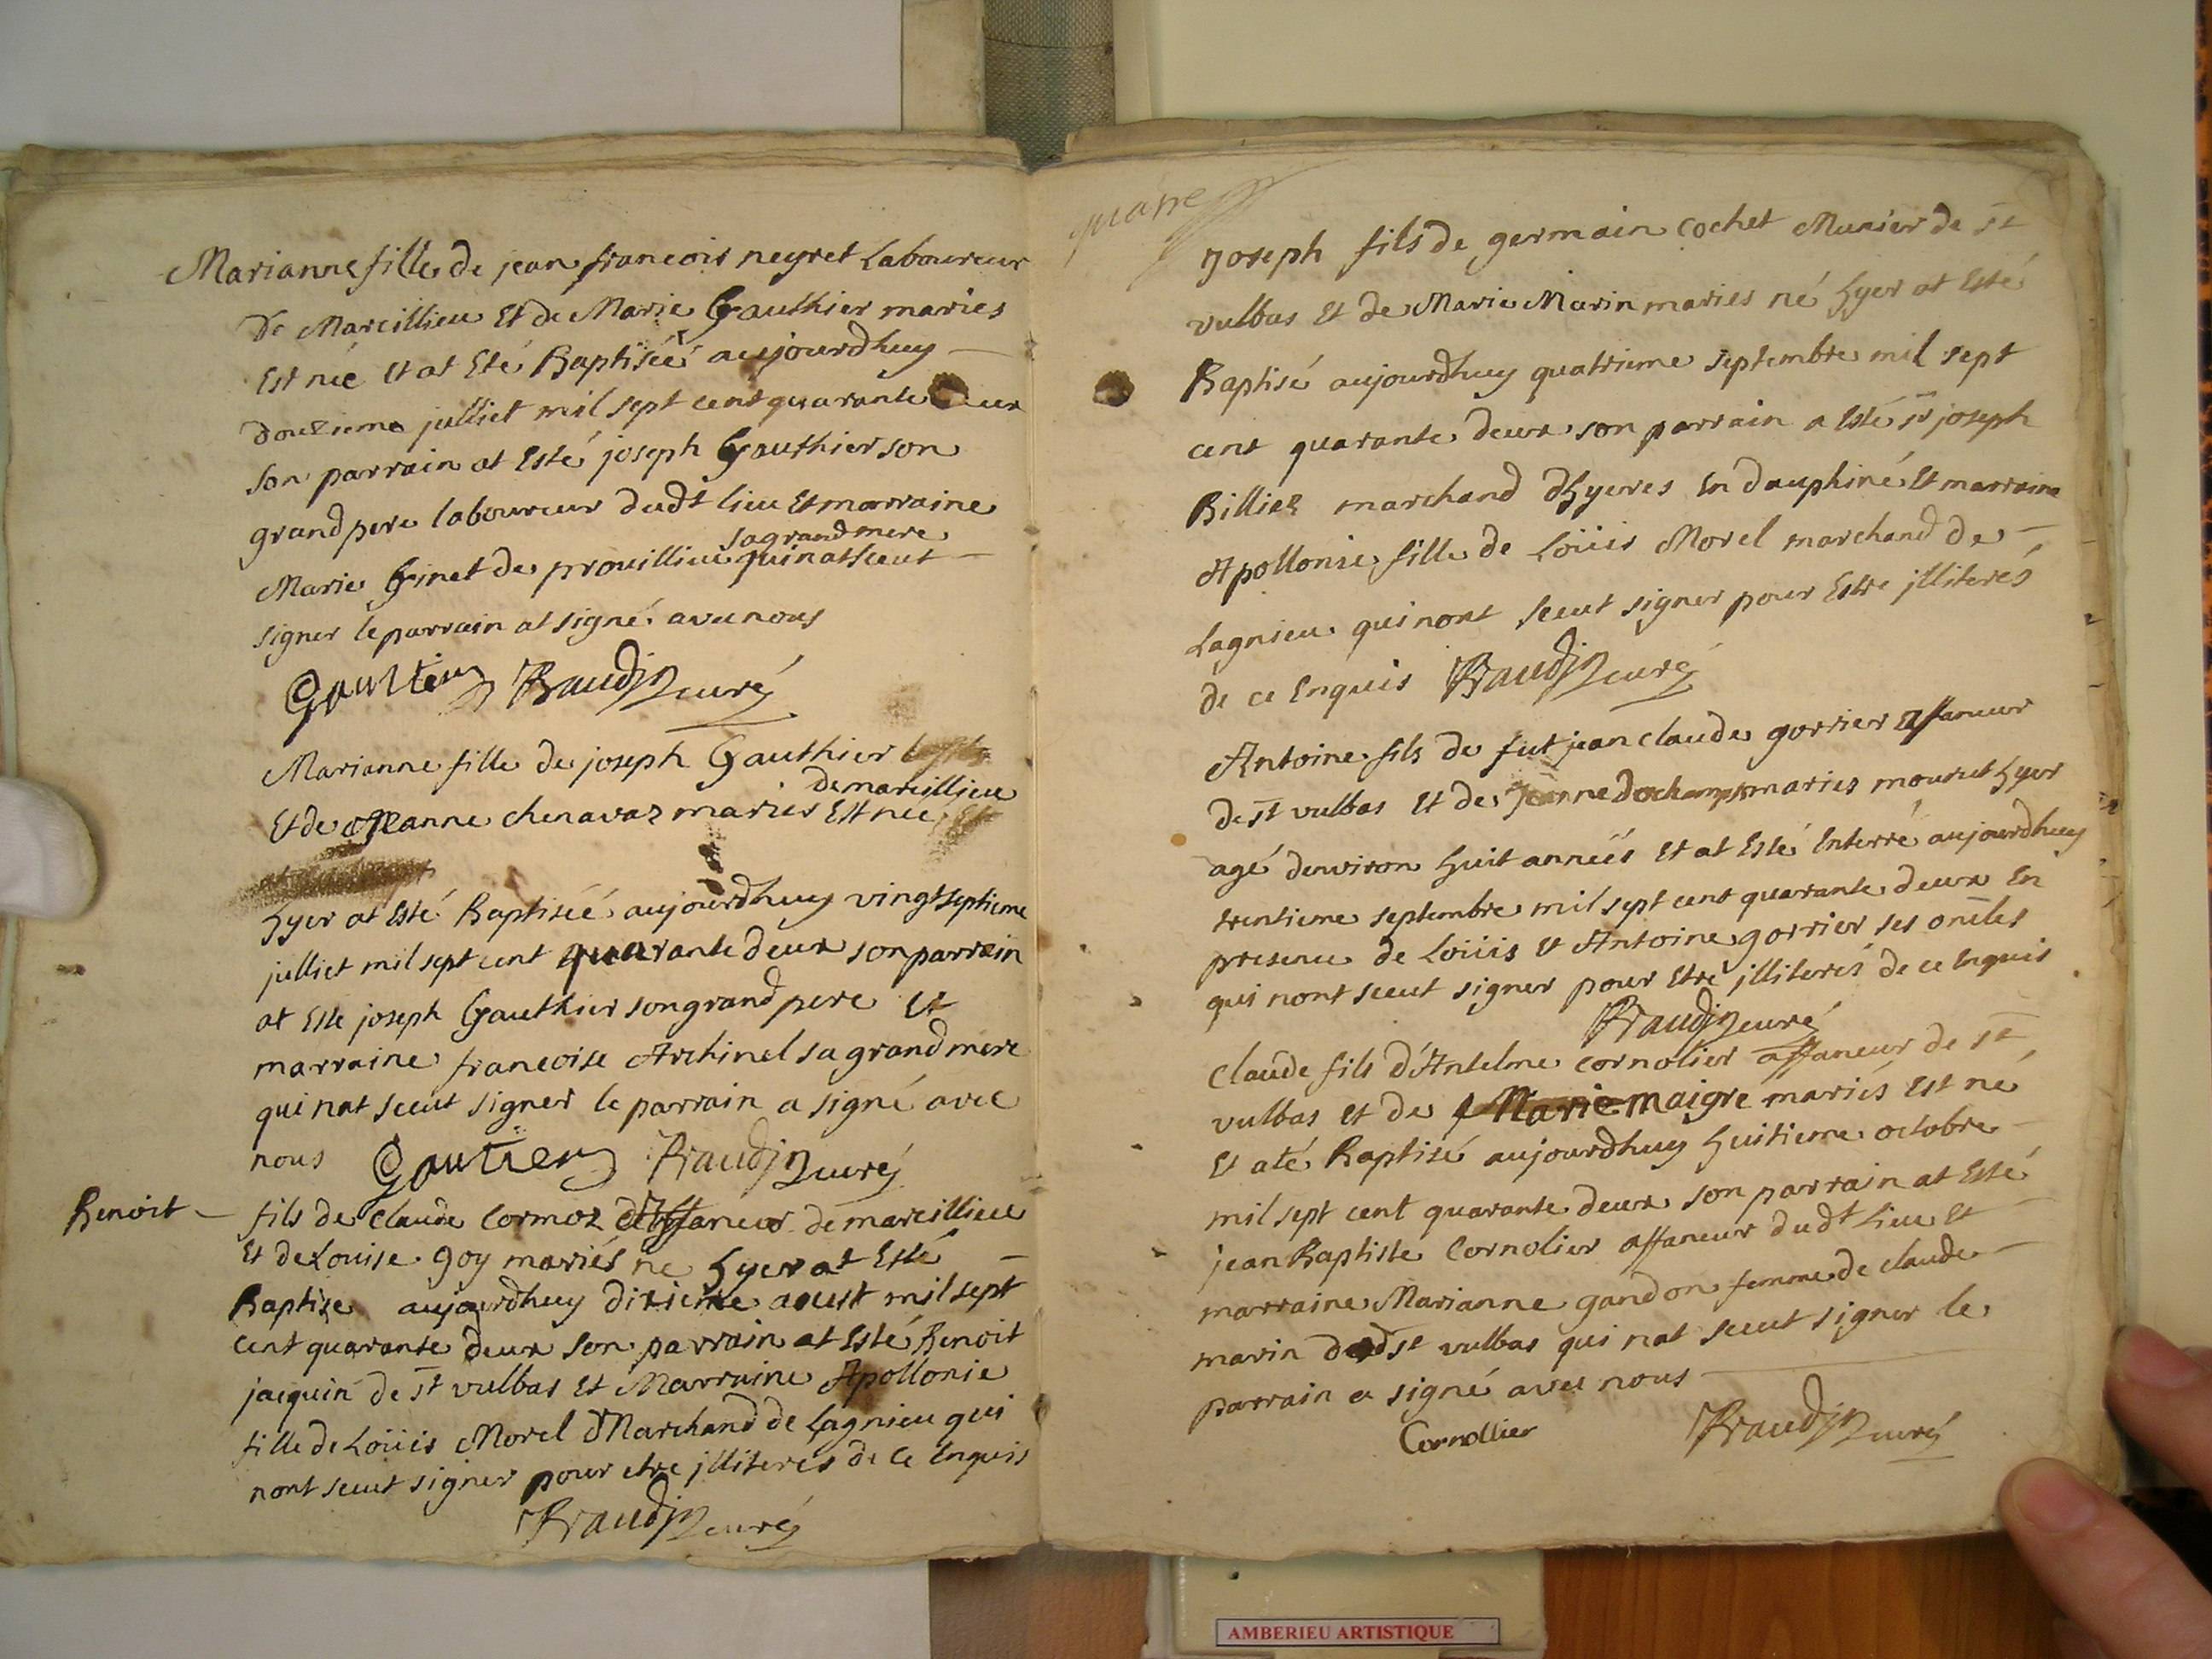 Marianne fille de jean francois neyret Laboureur
De Marcillieu Et de Marie Gauthier maries
Est née et at Eté Baptiséé aujourdhuy
douzieme julliet mil sept cent quarante Deux
son parrain at Esté joseph Gauthier son
grand pere laboureur dudt lieu Et marraine
sa grand mere
Marie Ginet de prouillieu qui nat sceut
signer le parrain at signé avec nous
Gautier Braudin curé
Marianne fille de joseph Gauthier
de marcillieu
Et de Jeanne chenavaz maries Est née
hyer at Esté Baptiséé aujourdhuy vingt septieme
julliet mil sept cent quarante deux son parrain
at Este joseph Gauthier son grand pere et
marraine francoise Archinel sa grand mere
qui nat sceut signer le parrain a signé avec
nous Gautier Braudin curé
Benoit - fils de claude Cormoz affaneur de marcillieu
Et de Louise goy mariés ne hyer at Esté
Baptize aujourdhuy dixieme aoust mil sept
cent quarante deux son parrain at Esté Benoit
jacquin de st vulbas et Marraine Apollonie
fille de Loüis Morel Marchand de Lagnieu qui
nont sceut signer pour etre jlliterés de ce Enquis
Braudin curé
quatre
joseph fils de germain cochet Munier de st
vulbas et de Marie Marin maries né hyer at Esté
Baptisé aujourdhuy quatrieme septembre mil sept
cent quarante deux son parrain a Esté sr joseph
Billiez marchand dhyeres En dauphiné Et marraine
Apollonie fille de Loüis Morel marchand de
Lagnieu qui nont sceut signer pour Estre jlliterés
de ce Enquis Braudin curé
Antoine fils de fut jean claude gorrier affaneur
de st vulbas et de Jeanne dechamps maries mourut hyer
agé denviron huit annéés et at Esté Enterré aujourdhuy
trentieme septembre mil sept cent quarante deux En
presence de Loüis et Antoine gorrier ses oncles
qui nont sceut signer pour Etre jlliterés de ce Enquis
Braudin curé
Claude fils d'Antelme cornolier affaneur de st
vulbas et de Marie maigre mariés Est né
Et até Baptisé aujourdhuy huitieme octobre
mil sept cent quarante deux son parrain at Esté
jean Baptiste Cornolier affaneur dudt Lieu et
marraine Marianne gandon femme de claude
marin dudt st vulbas qui nat sceut signer le
parrain a signé avec nous
Cornollier Braudin curé
AMBERIEU ARTISTIQUE